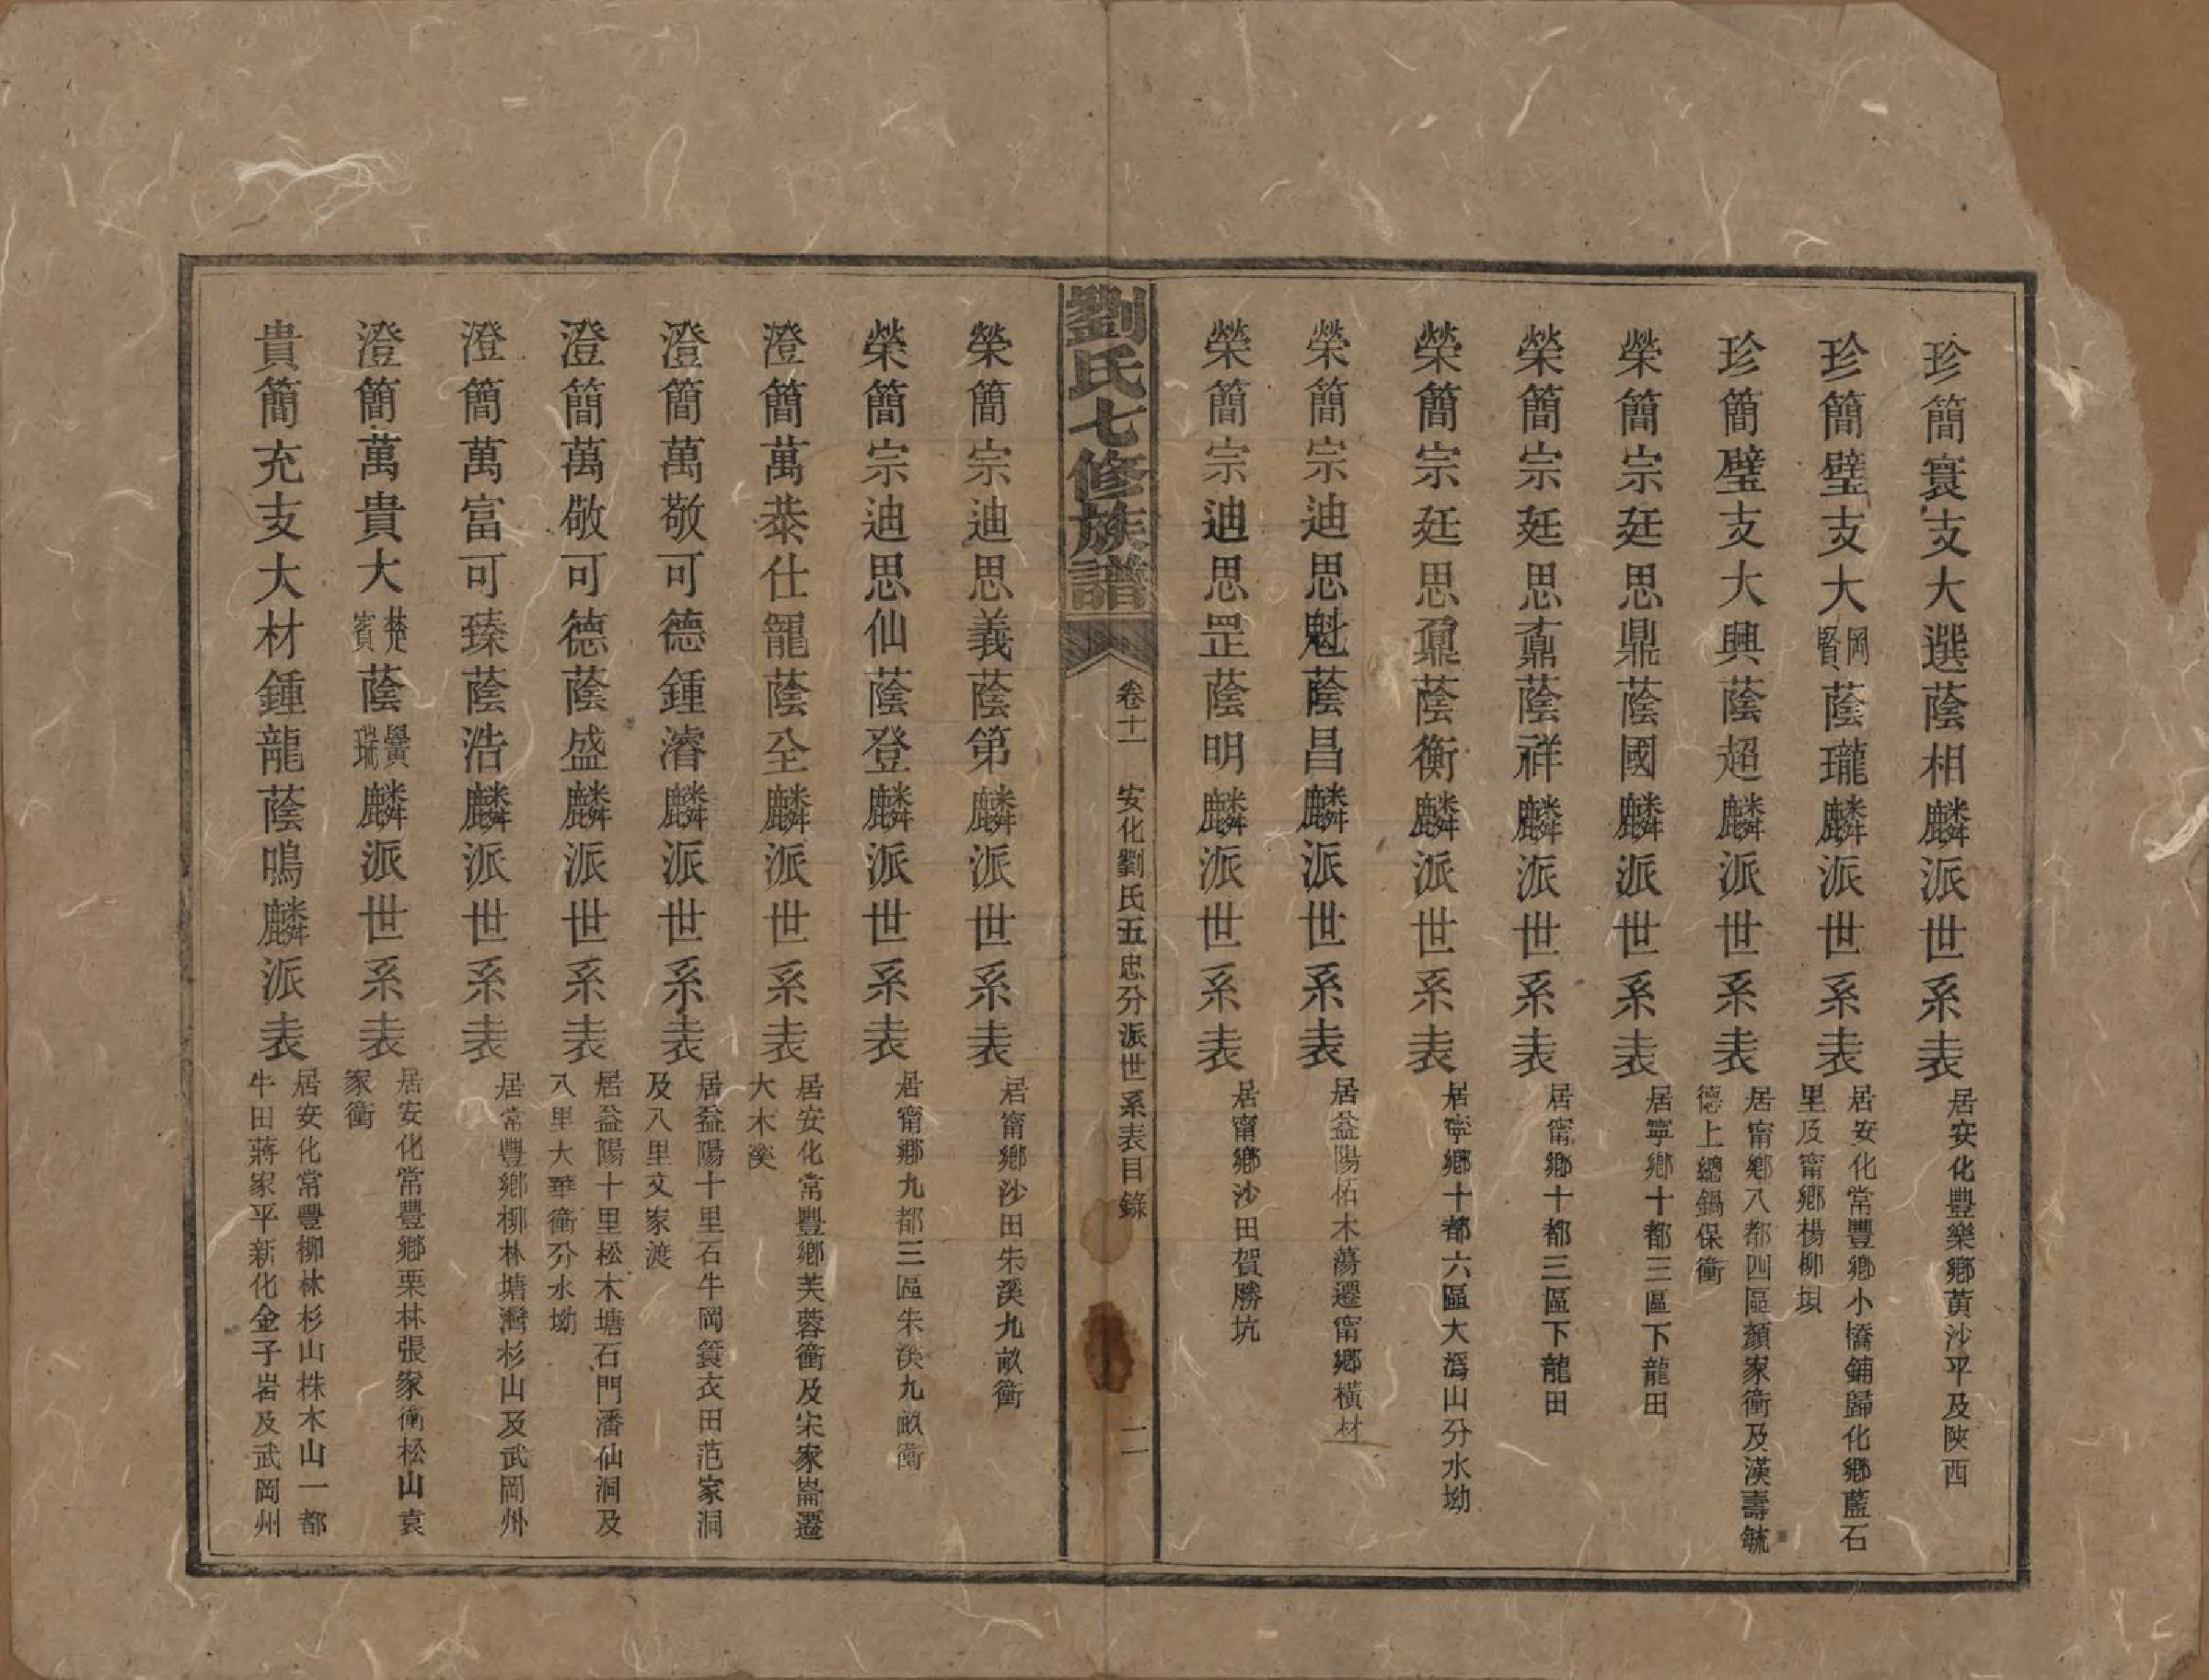 珍簡寰支大選蔭相麟派世系表 居安化豐樂鄉黃沙平及陝西
珍簡璧支大岡賢蔭瓏麟派世系表 居安化常豐鄉小橋鋪歸化鄉藍石里及甯鄉楊柳垻
珍簡璧支大興蔭超麟派世系表 居甯鄉八都四區顏家衝及漢壽毓德上總鍋保衝
榮簡宗廷思鼎蔭國麟派世系表 居寧鄉十都三區下龍田
榮簡宗廷思鼒蔭祥麟派世系表 居甯鄉十都三區下龍田
榮簡宗廷思鼐蔭衡麟派世系表 居寧鄉十都六區大溈山分水坳
榮簡宗迪思魁蔭昌麟派世系表 居益陽栢木蕩遷甯鄉橫材
榮簡宗迪思罡蔭明麟派世系表 居甯鄉沙田賀勝坑
劉氏七修族譜 卷十一 安化劉氏五忠分派世系表目錄 二
榮簡宗迪思義蔭第麟派世系表 居甯鄉沙田朱溪九畝衝
榮簡宗迪思仙蔭登麟派世系表 居甯鄉九都三區朱溪九畝衝
澄簡萬恭仕寵蔭全麟派世系表 居安化常豐鄉芙蓉衝及宋家崙遷大木溪
澄簡萬敬可德鍾濬麟派世系表 居益陽十里石牛岡簑衣田范家洞及八里文家渡
澄簡萬敬可德蔭盛麟派世系表 居益陽十里松木塘石門潘仙洞及八里大華衝分水坳
澄簡萬富可臻蔭浩麟派世系表 居常豐鄉柳林塘灣杉山及武岡州
澄簡萬貴大楚賓蔭黌瑞麟派世系表 居安化常豐鄉栗林張家衝松山袁家衝
貴簡充支大材鍾龍蔭鳴麟派表 居安化常豐柳林杉山株木山一都牛田蔣家平新化金子岩及武岡州